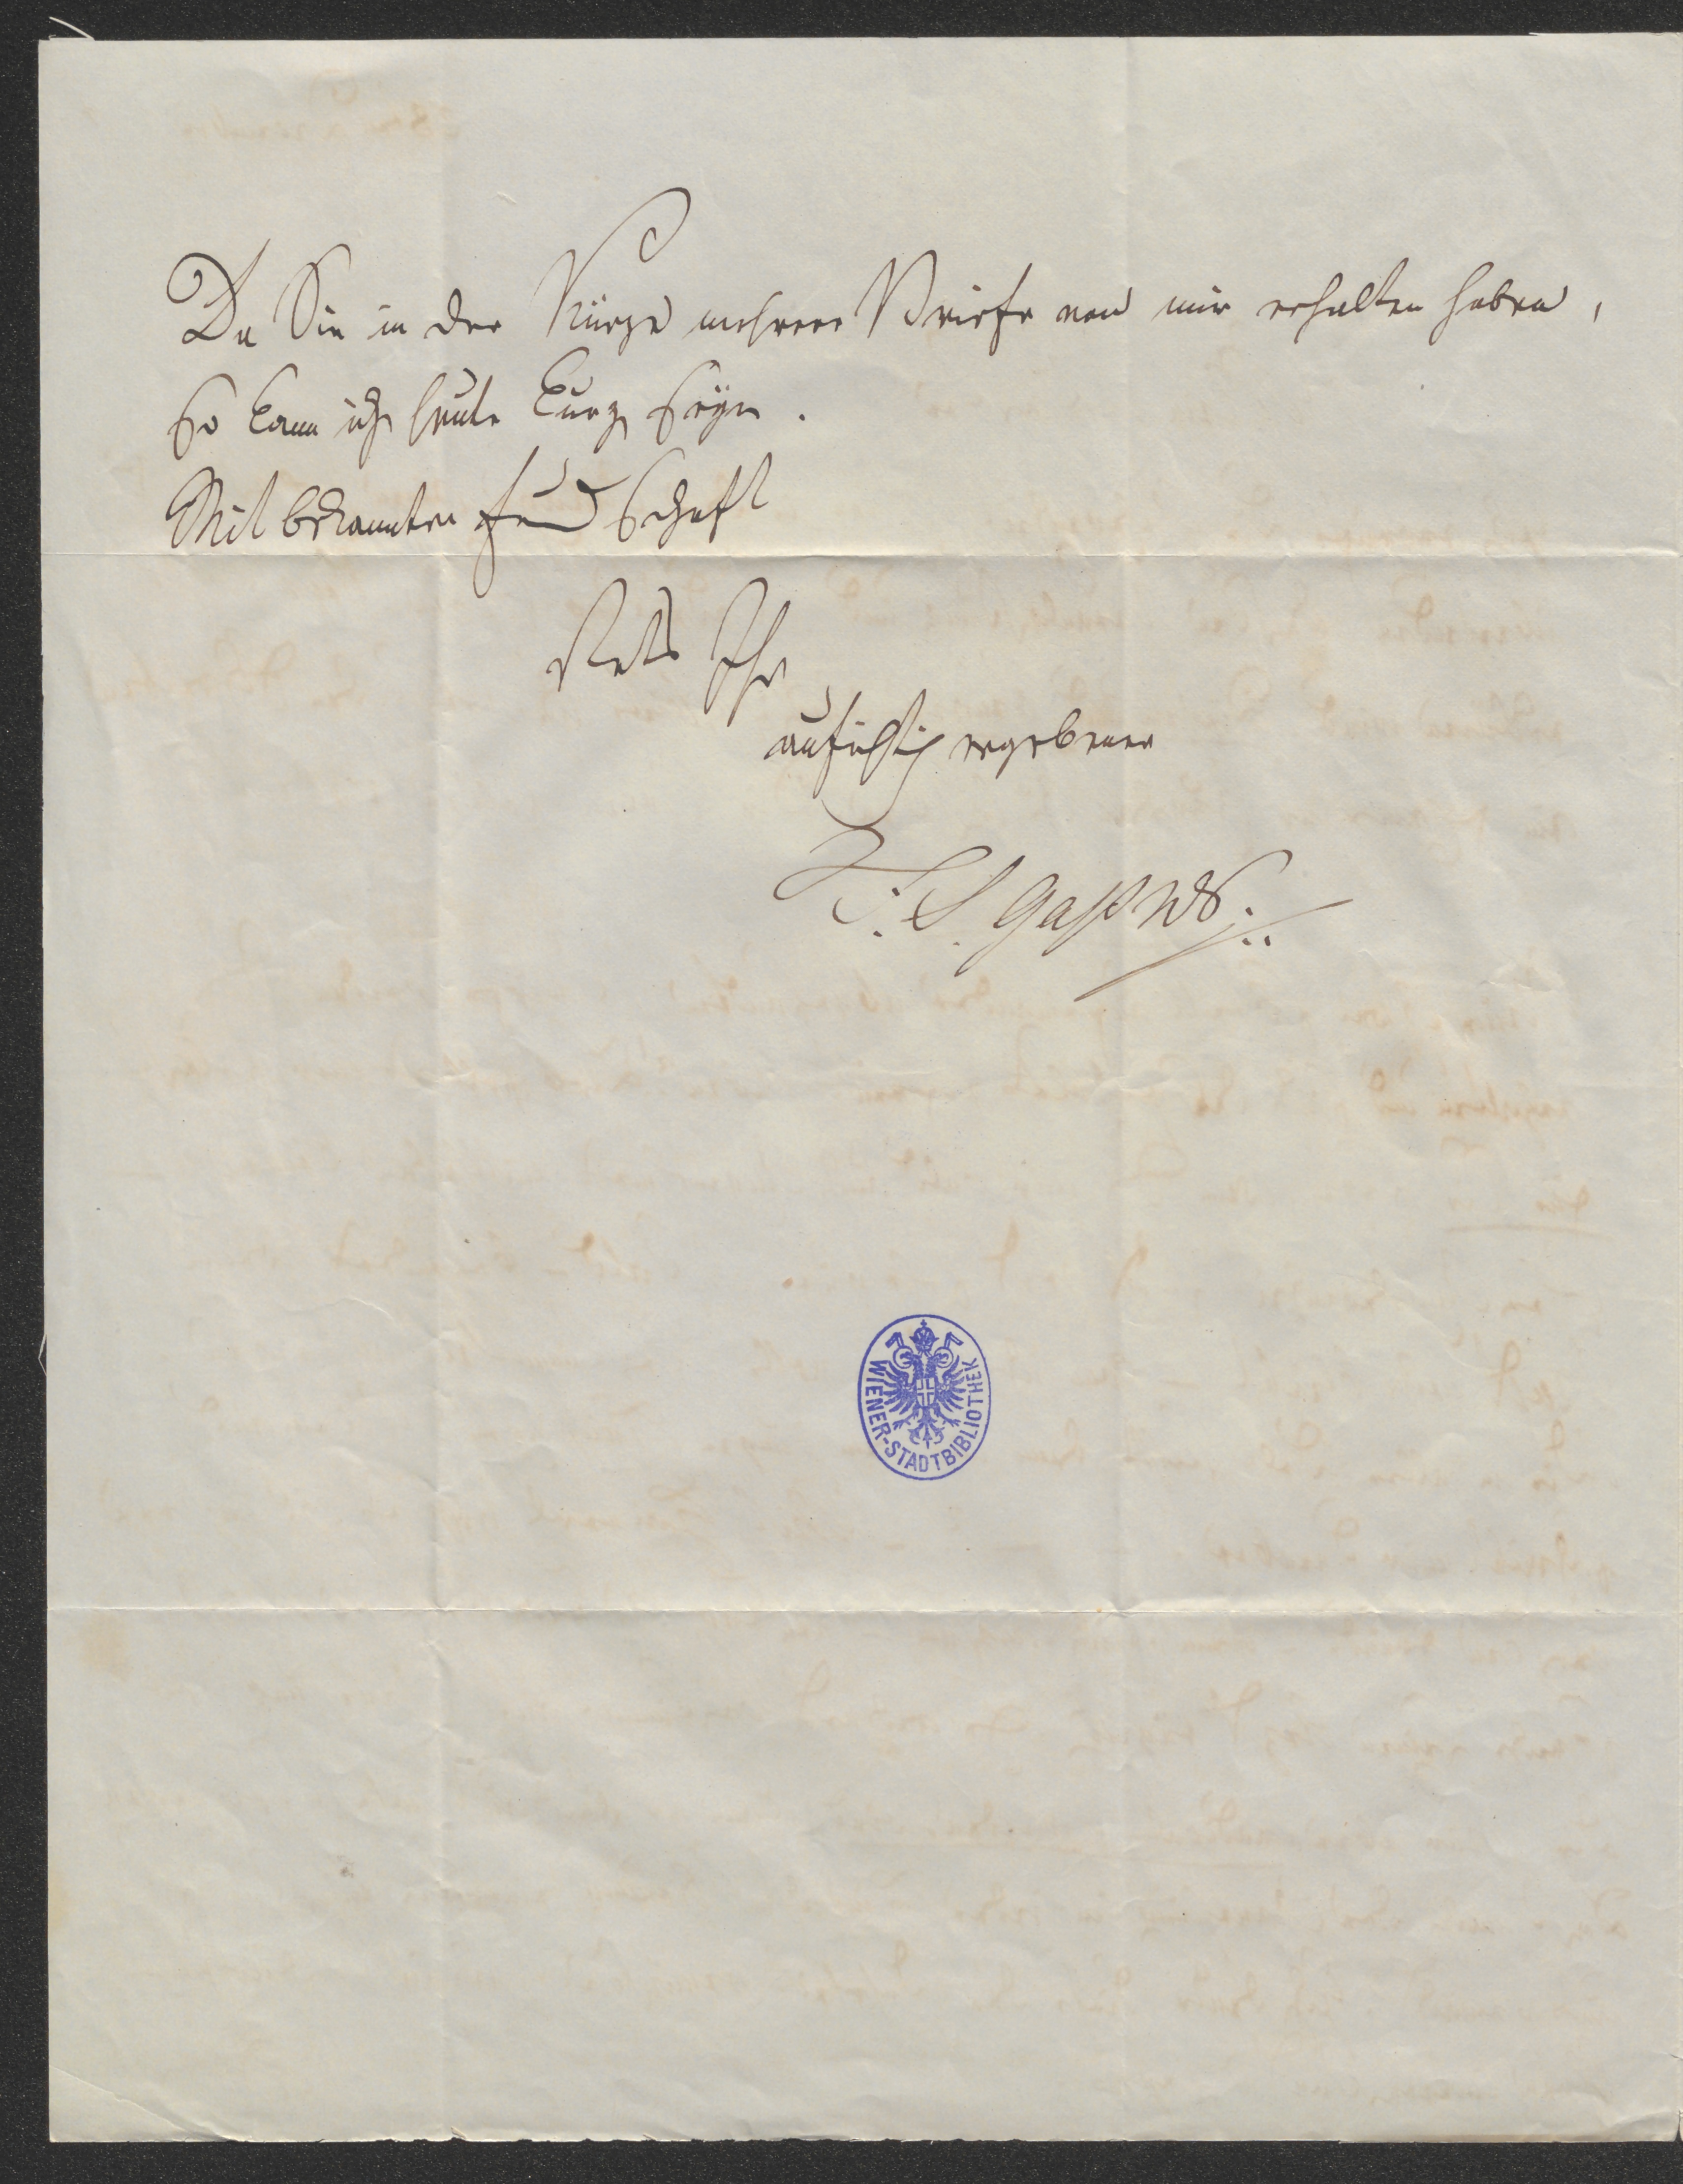 Da Sie in der Kürze mehrere Briefe von mir erhalten haben,
so kann ich heute kurz seyn.
Mit bekannter Freundschaft
Stets Ihr
aufrichtig ergebener
F. S. Gaßner
WIENER-STADTBIBLIOTHEK